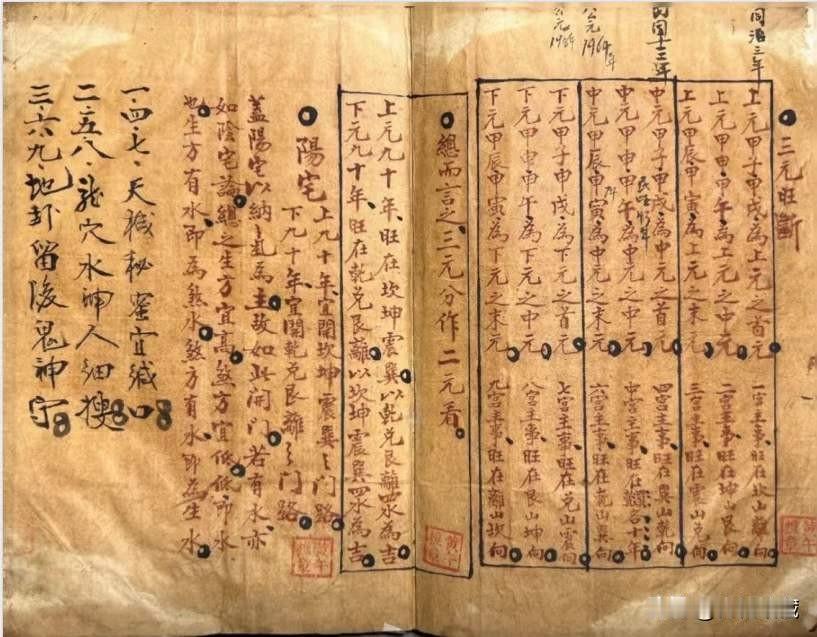 同治三年
民国十三年
公元1964年
三元旺斷
上元甲子申戌為上元之首元 一宮主事旺在坎山離向
上元甲申甲午為上元之中元 二宮主事旺在坤山艮向
上元甲辰甲寅為上元之末元 三宮主事旺在震山兌向
中元甲子甲戌為中元之首元 四宮主事旺在巽山乾向
中元甲申甲午為中元之中元 中宮主事旺在
中元甲辰甲寅為中元之末元 六宮主事旺在乾山巽向
下元甲子甲戌為下元之首元 七宮主事旺在兌山震向
下元甲申甲午為下元之中元 八宮主事旺在艮山坤向
下元甲辰甲寅為下元之末元 九宮主事旺在離山坎向
總而言之三元分作二元看
上元九十年旺在坎坤震巽以乾兌艮離四水為吉
下元九十年旺在乾兌艮離以坎坤震巽四水為吉
陽宅
上九十年宜開坎坤震巽之門路
下九十年宜開乾兌艮離之門路
蓋陽宅以納氣為主故如此開門若有水亦
如陰宅論總之生方宜高煞方宜低低即水
也生方有水即為煞水煞方有水即為生水
一·四·七·天機秘密宜緘口
二·五·八·龍穴水神人細搜
三·六·九·地卦留後鬼神守